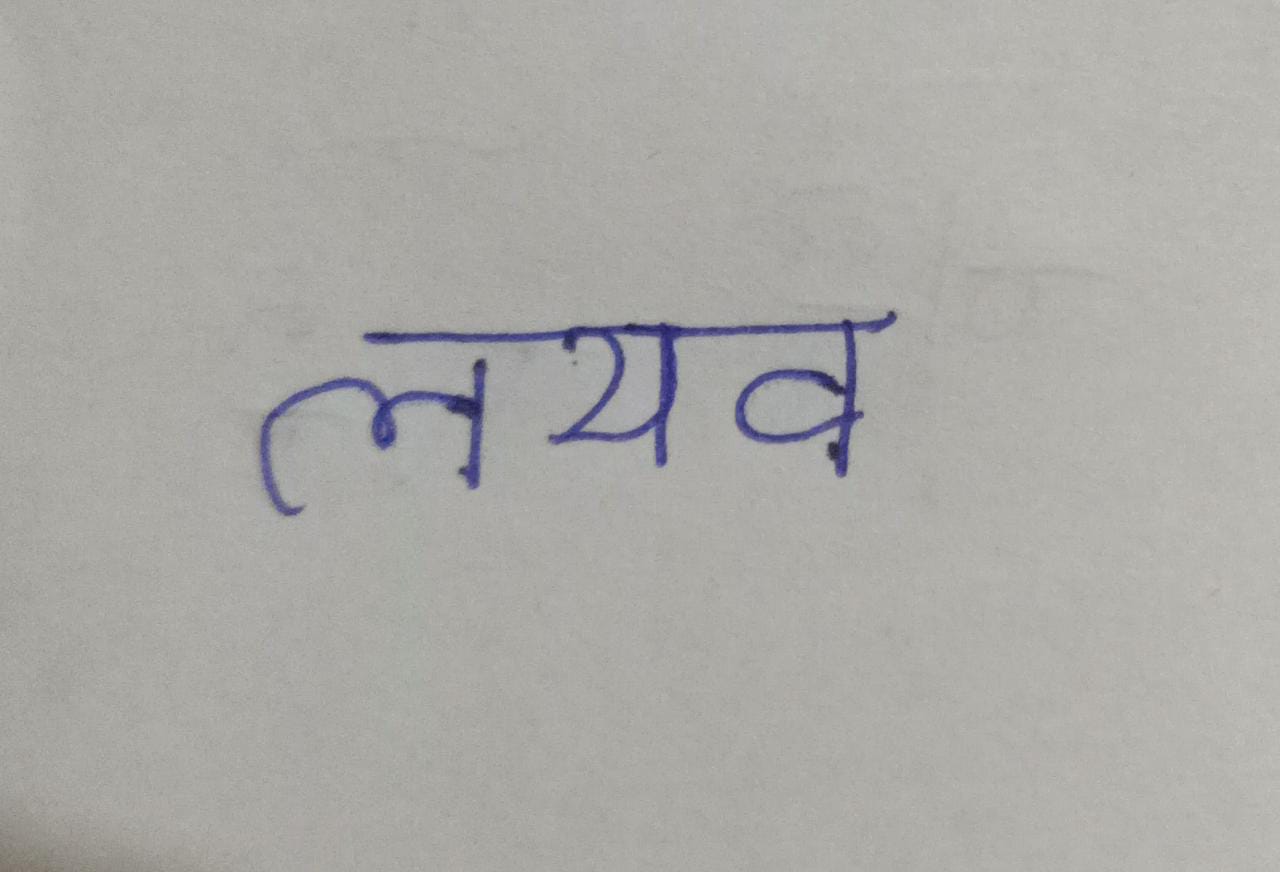 लयव